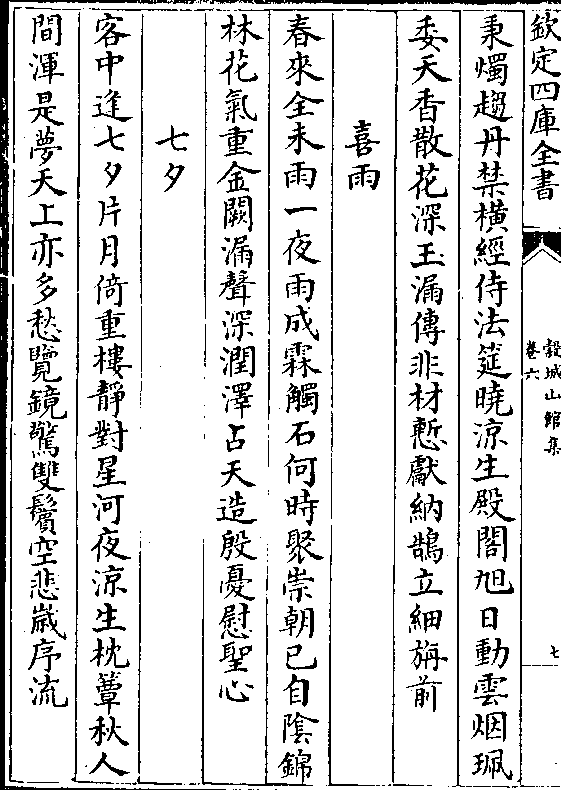 欽定四庫全書
穀城山館集
卷六
七
秉燭趨丹禁橫經侍法筵曉涼生殿閣旭日動雲烟珮
委天香散花深玉漏傳非材慙獻納鵠立細旃前
喜雨
春來全未雨一夜雨成霖觸石何時聚崇朝已自陰錦
林花氣重金闕漏聲深潤澤占天造殷憂慰聖心
七夕
客中逢七夕片月倚重樓靜對星河夜涼生枕簟秋人
間渾是夢天上亦多愁覽鏡驚雙鬢空悲歲序流